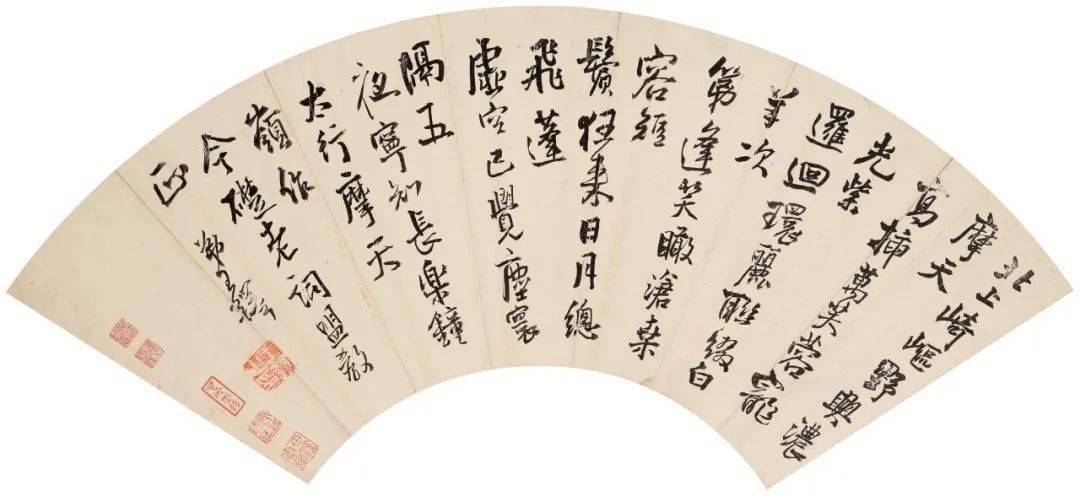 北上崎嶇野興濃
摩天
高插萬芙蓉寵
光紫
邏迴環麗聯綴白
羊次
第逢笑瞰滄桑
容短
鬢狂來日月總
飛蓬
虛空已覺塵寰
隔五
夜寧知長樂鐘
太行摩天
嶺作
今礎老詞盟教
正